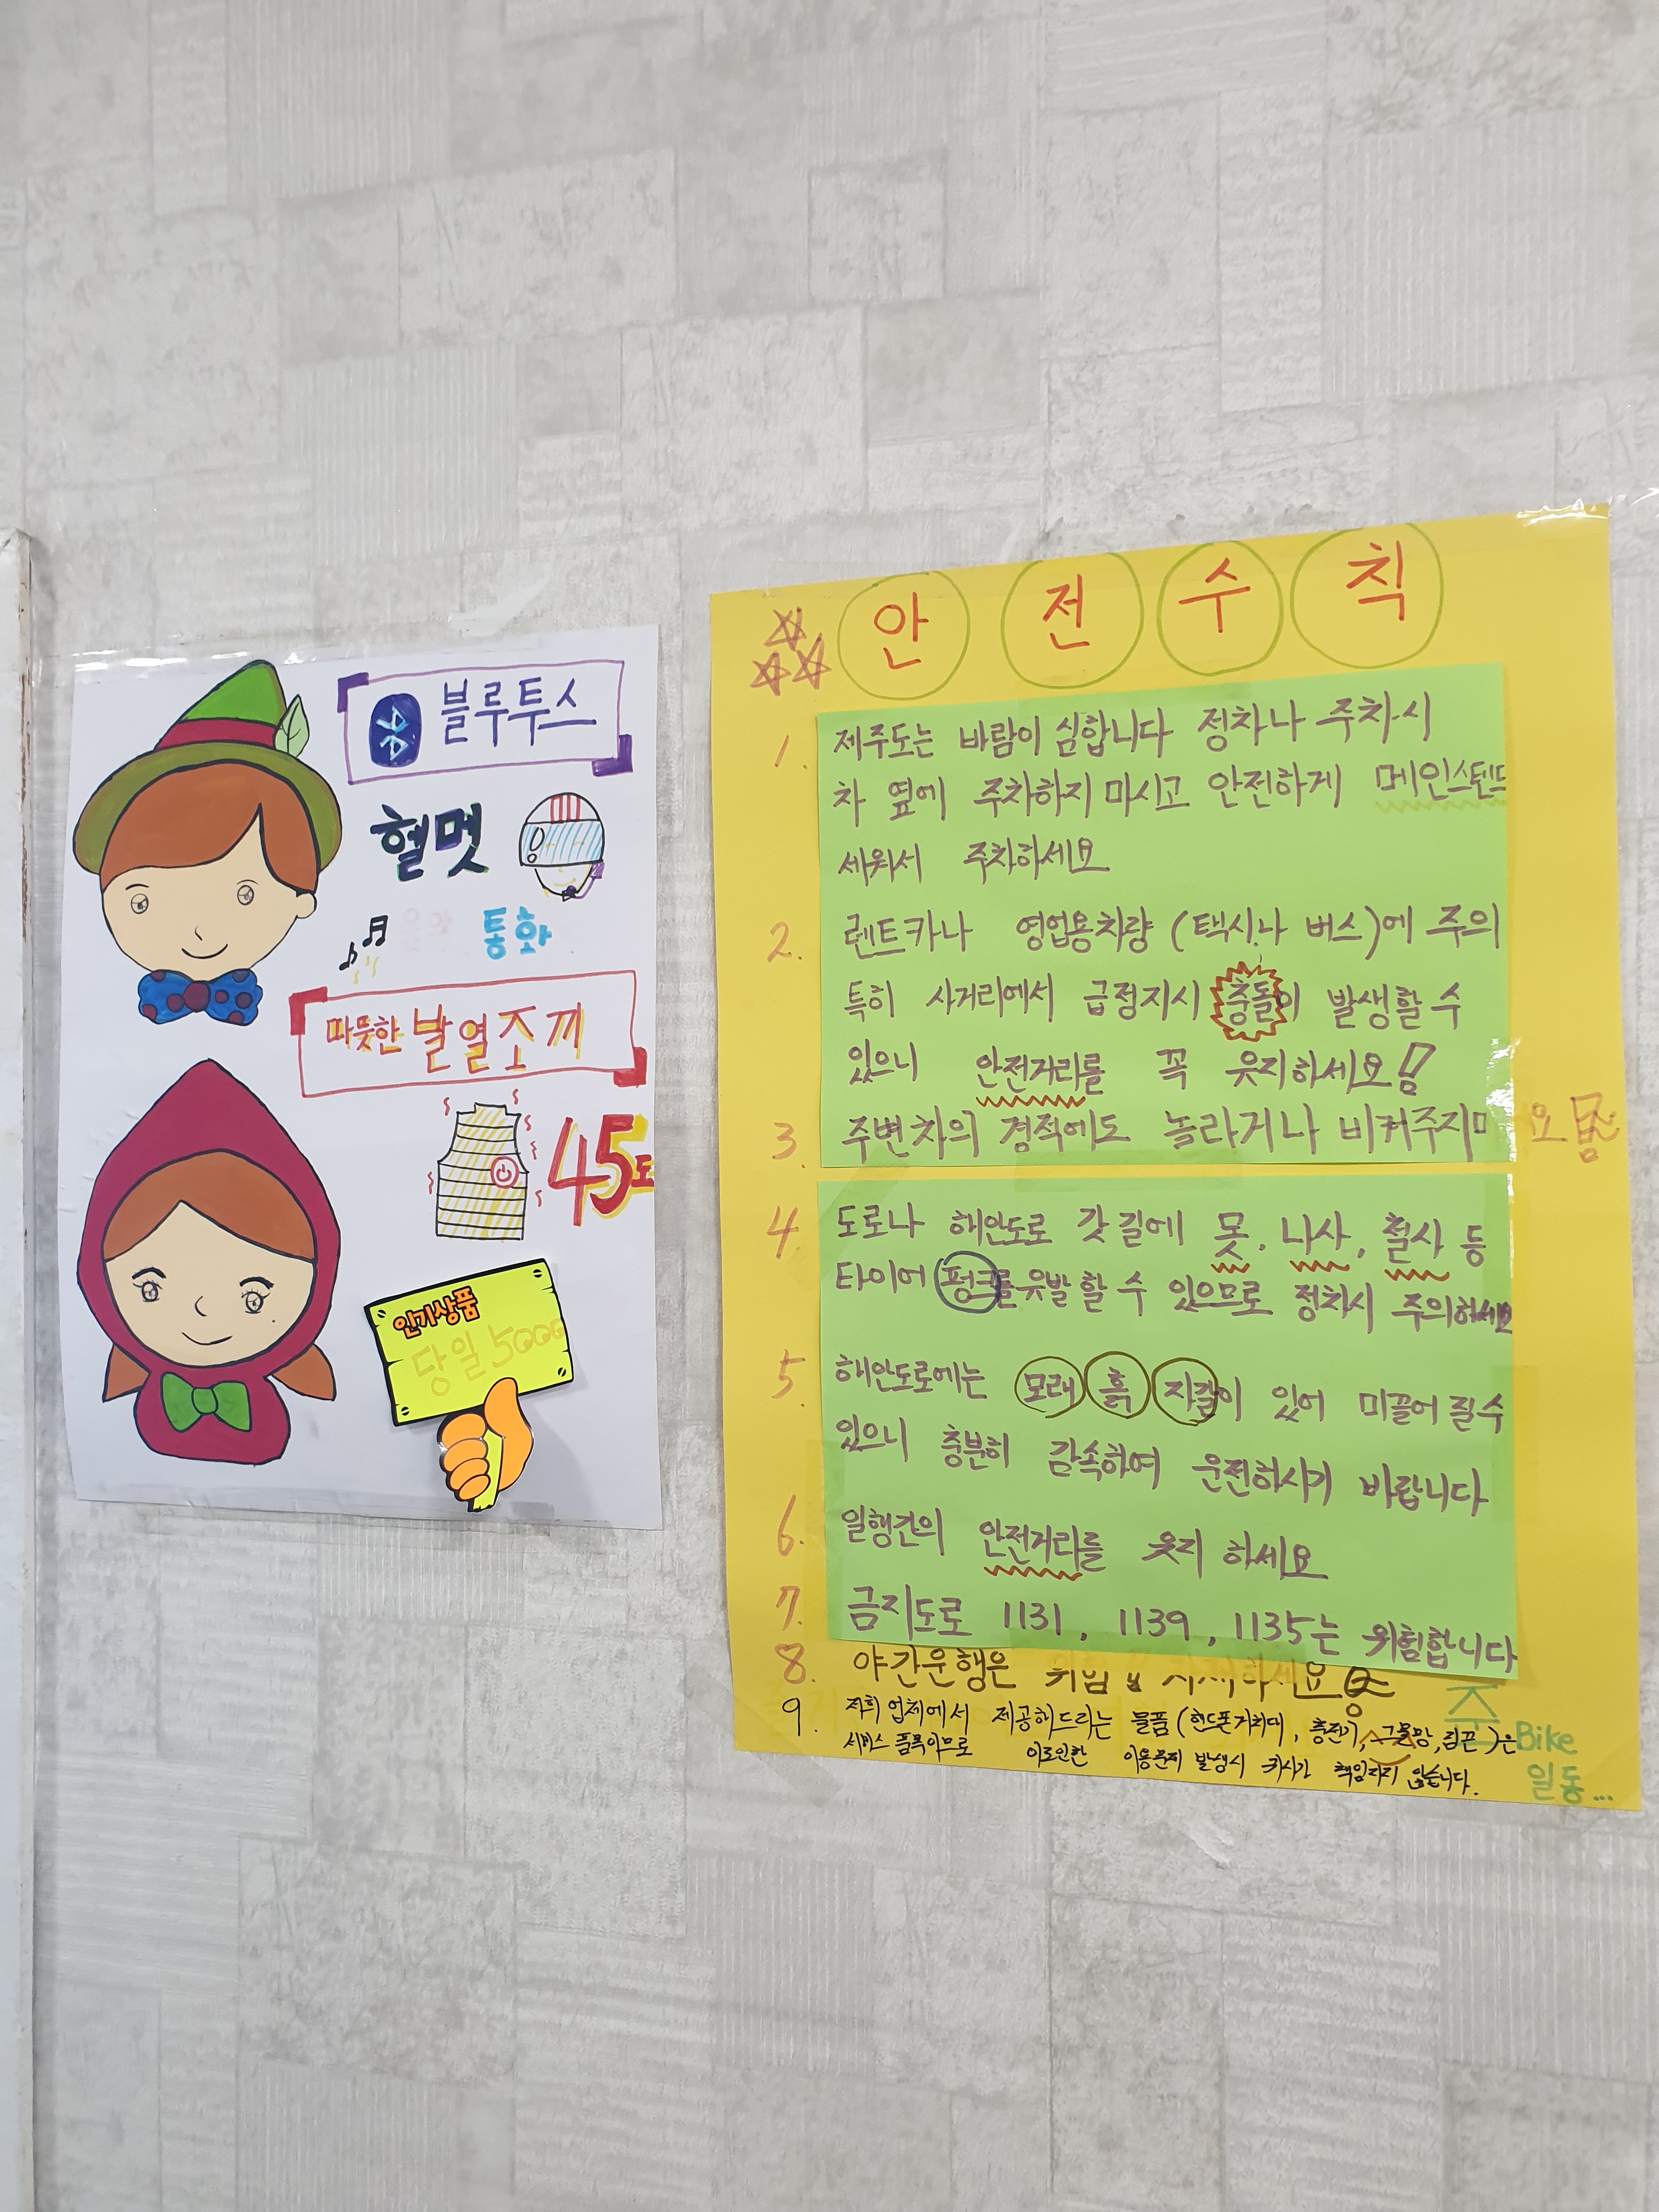 블루투스
헬멧
통화
따뜻한 발열조끼
45도
인기상품
당일 5000
안전수칙
1. 제주도는 바람이 심합니다 정차나 주차시
차 옆에 주차하지 마시고 안전하게 메인스텐드
세워서 주차하세요
2. 렌트카나 영업용차량 (택시나 버스)에 주의
특히 사거리에서 급정지시 충돌이 발생할 수
있으니 안전거리를 꼭 유지하세요!
3. 주변차의 경적에도 놀라거나 비켜주지
4. 도로나 해안도로 갓길에 못, 나사, 철사 등
타이어 펑크를 유발할 수 있으므로 정차시 주의하세요
5. 해안도로에는 모래 흙 자갈이 있어 미끌어 질수
있으니 충분히 감속하여 운전하시기 바랍니다
6. 일행간의 안전거리를 유지 하세요
7. 금지도로 1131, 1139, 1135는 위험합니다
8. 야간운행은
9. 저희 업체에서 제공해드리는 물품(핸드폰거치대, 충전기, 그물망, 짐끈)은
서비스 품목이므로 이로인한 이용문제 발생시 책임지지 않습니다.
Bike
일동...